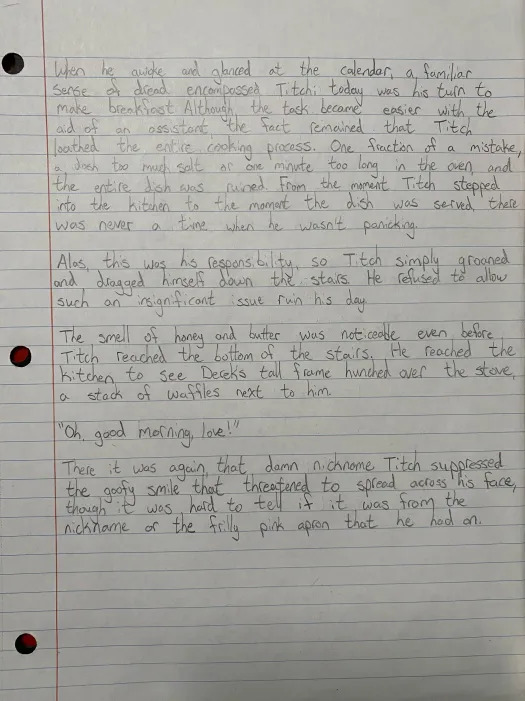 When he awoke and glanced at the calendar, a familiar
sense of dread encompassed Titch; today was his turn to
make breakfast. Although the task became easier with the
aid of an assistant, the fact remained that Titch
loathed the entire cooking process. One fraction of a mistake,
a dash too much salt or one minute too long in the oven, and
the entire dish was ruined. From the moment Titch stepped
into the kitchen to the moment the dish was served, there
was never a time when he wasn't panicking.
Alas, this was his responsibility, so Titch simply groaned
and dragged himself down the stairs. He refused to allow
such an insignificant issue ruin his day.
The smell of honey and butter was noticeable even before
Titch reached the bottom of the stairs. He reached the
kitchen to see Decek's tall frame hunched over the stove,
a stack of waffles next to him.
"Oh, good morning, love!"
There it was again, that damn nickname. Titch suppressed
the goofy smile that threatened to spread across his face,
though it was hard to tell if it was from the
nickname or the frilly pink apron that he had on.